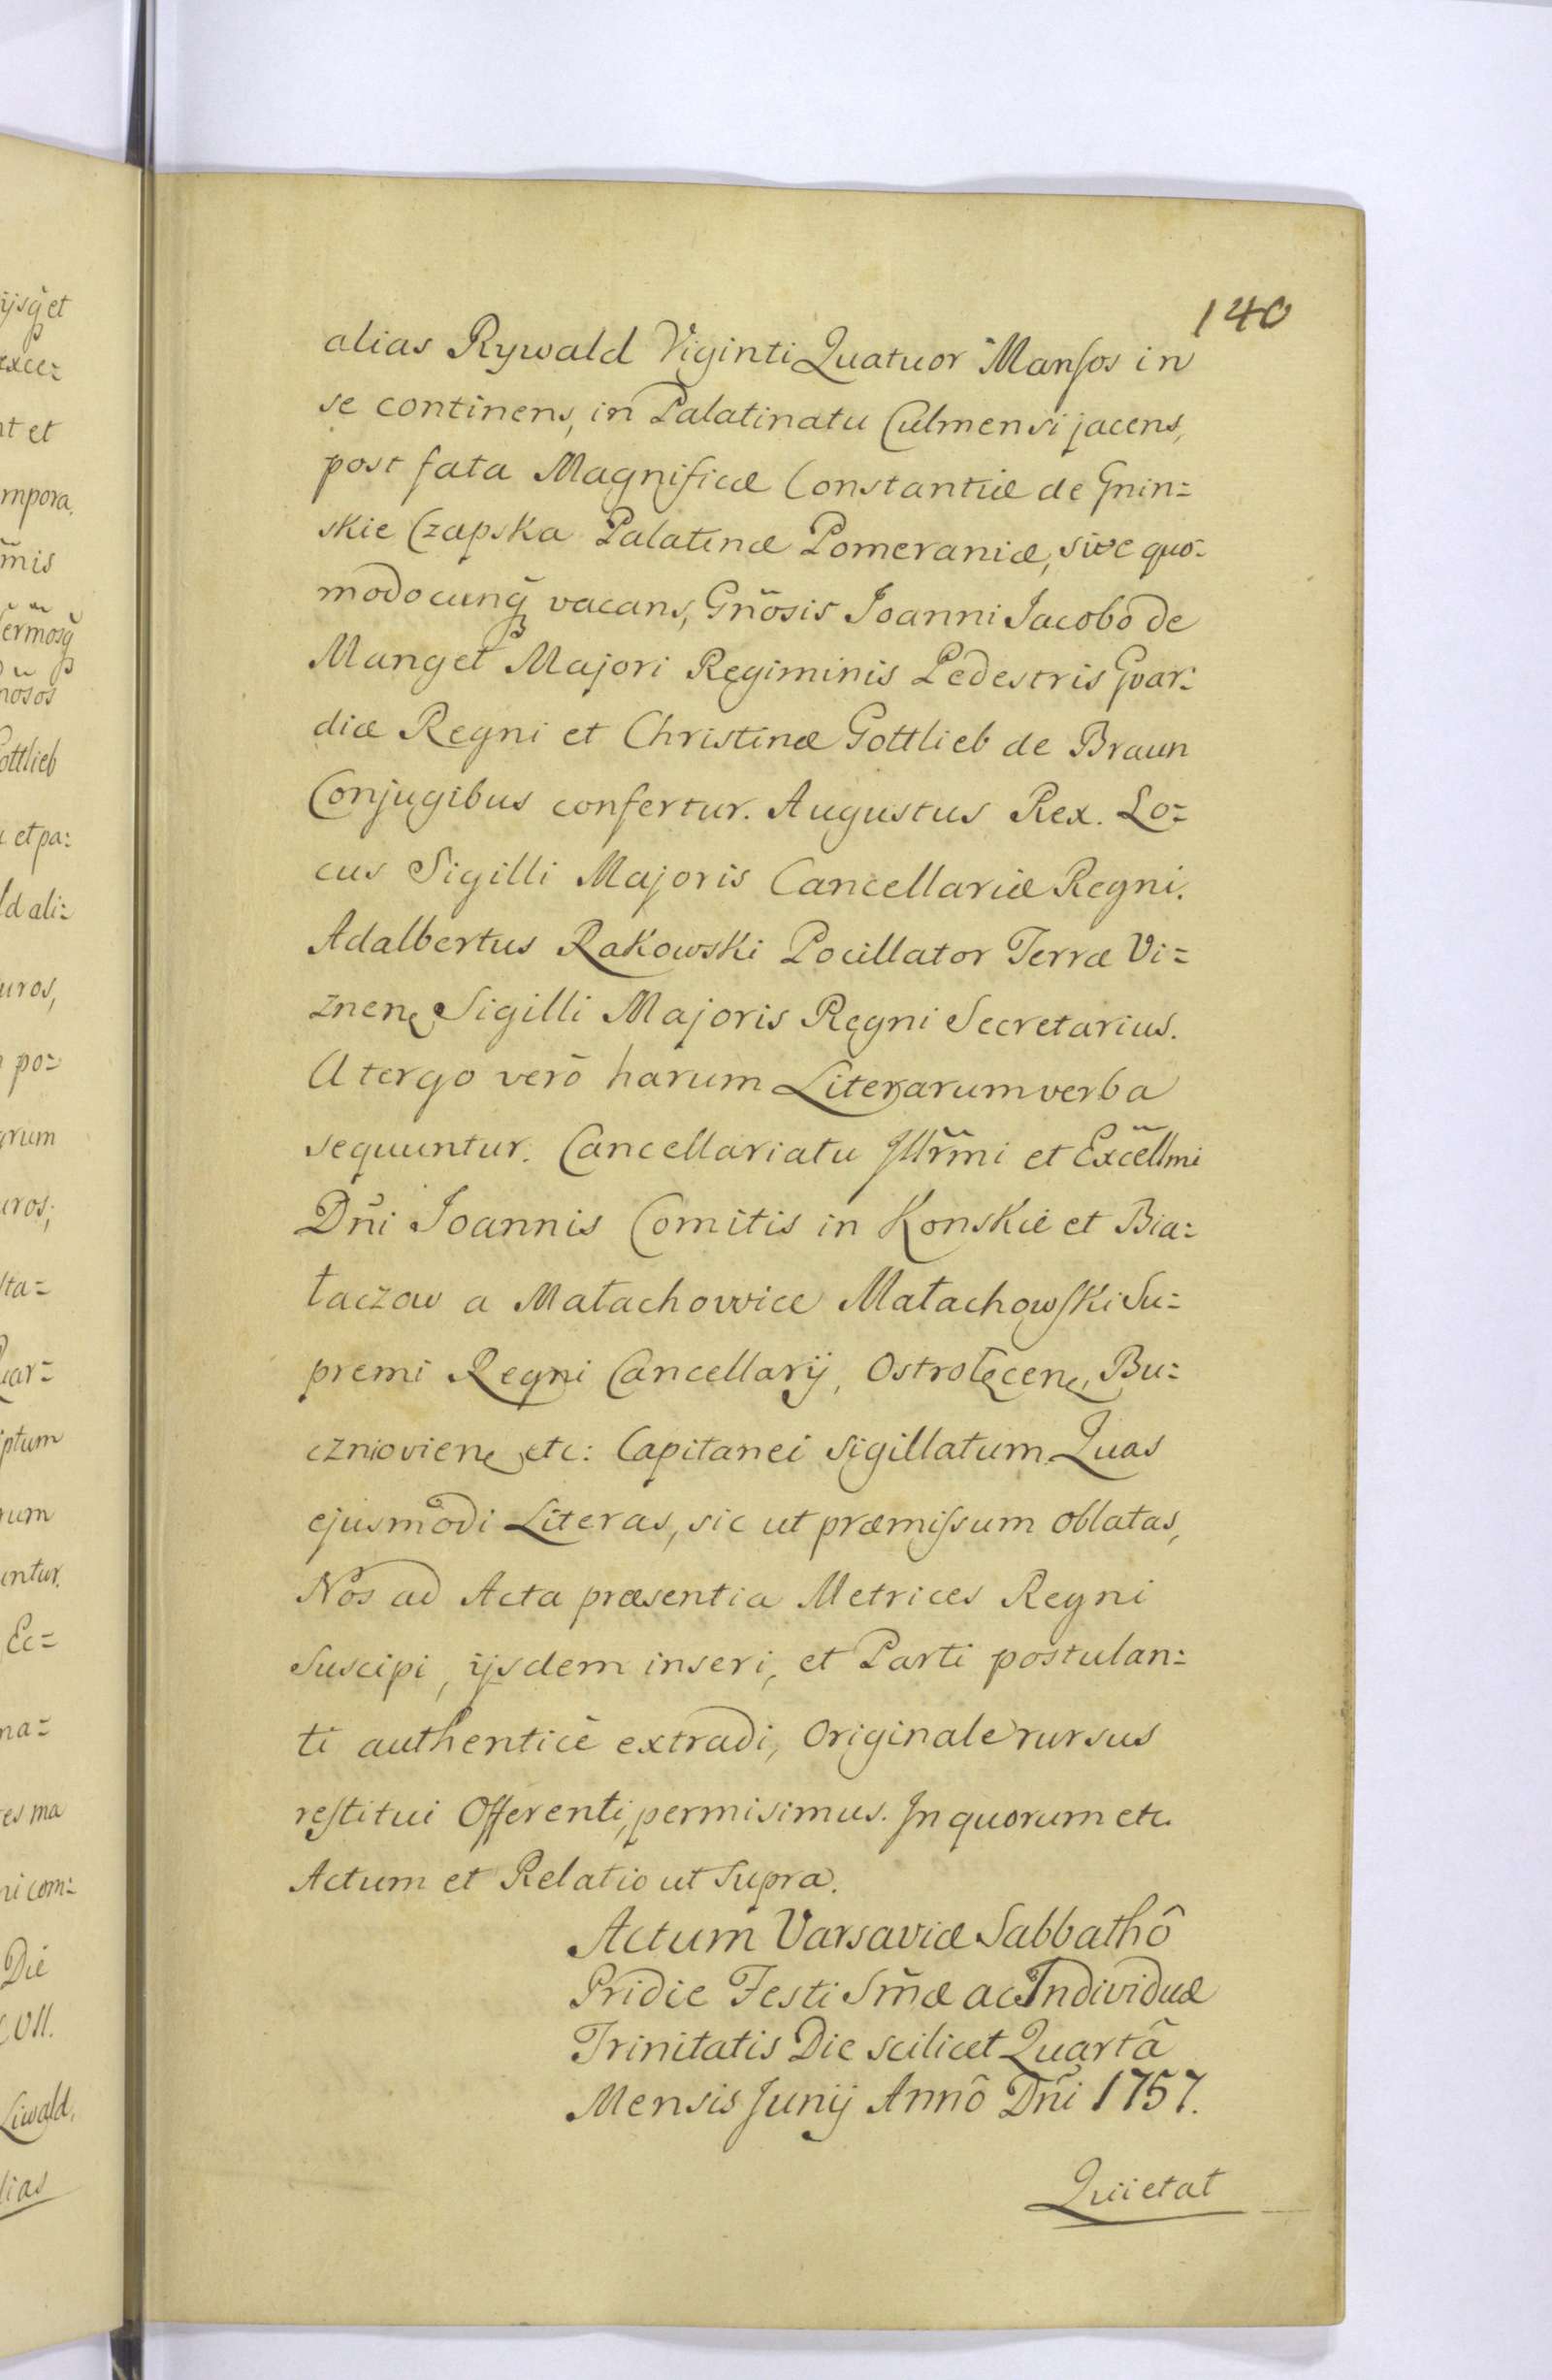 140
alias Rywald Viginti Quatuor Mansos in
se continens, in Palatinatu Culmensi jacens,
post fata Magnificæ Constantiæ de Gnin=
skie Czapska Palatinæ Pomeraniæ, sive quo=
modocunq̃ vacans, Gñosis Joanni Jacobo de
Manget Majori Regiminis Pedestris Gvar=
diæ Regni et Christinæ Gottlieb de Braun
Conjugibus confertur. Augustus Rex. Lo=
cus Sigilli Majoris Cancellariæ Regni.
Adalbertus Rakowski Pocillator Terræ Vi=
znen, Sigilli Majoris Regni Secretarius.
A tergo verò harum Literarum verba
sequuntur. Cancellariatu Jllr̃mi et Excellm̃i
Dñi Joannis Comitis in Konskie et Bia=
łaczow a Małachowice Małachowski Su=
premi Regni Cancellarij, Ostrołęcen, Bu=
czniovien, etc: Capitanei sigillatum. Quas
ejusmodi Literas, sic ut præmissum oblatas,
Nos ad Acta præsentia Metrices Regni
suscipi, ijsdem inseri, et Parti postulan=
ti authenticè extradi, Originale rursus
restitui Offerenti, permisimus. Jn quorum etc.
Actum et Relatio ut supra.
Actum Varsaviæ Sabbathô
Pridie Festi Sm̃æ ac Individuæ
Trinitatis Die scilicet Quartâ
Mensis Junij Annô Dñi 1757.
Quietat
ijsq̃ et
exce=
nt et
mpora.
m̃is
nosos
ottlieb
et pa=
ld ali=
uros,
po=
arum
uros,
lta=
uar=
iptum
rum
untur.
Ec=
na=
es ma
ni com=
Die
Liwald,
lias